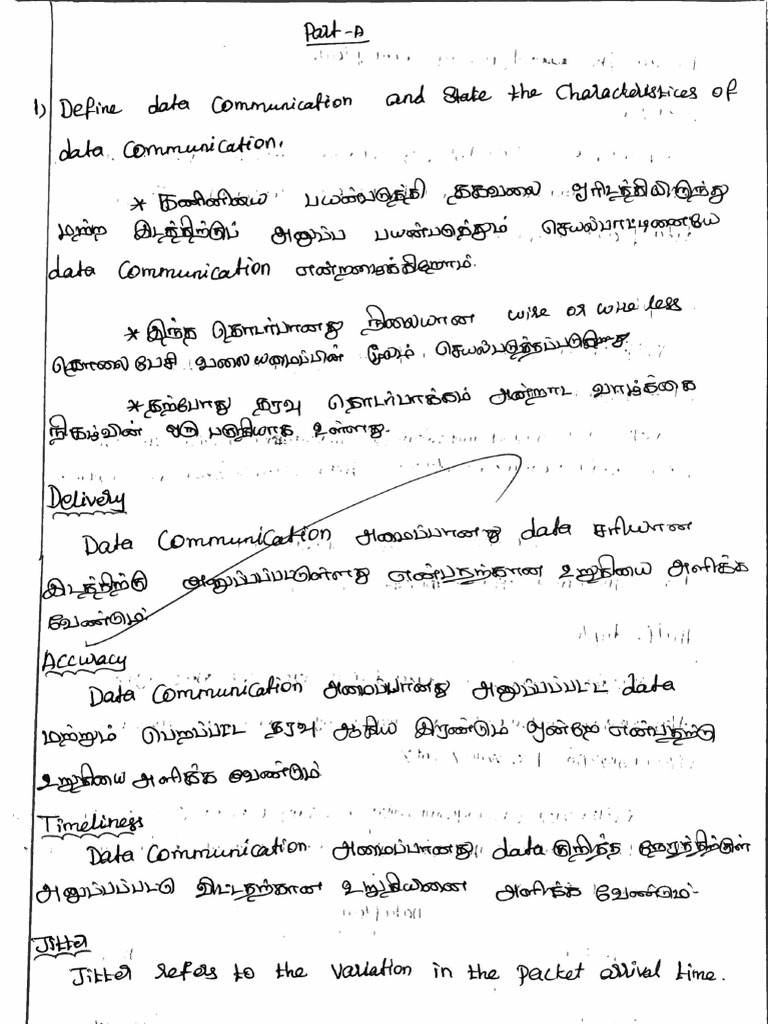 Part-A
1) Define data Communication and State the Characteristices of
data Communication.
* கணினியை பயன்படுத்தி தகவலை ஓரிடத்திலிருந்து
மற்ற இடத்திற்கும் அனுப்ப பயன்படுத்தும் செயல்பாட்டினையே
data Communication என்றழைக்கிறோம்.
* இந்த தொடர்பானது நிலையான wire or wire less
தொலைபேசி வலையமைப்பின் மூலம் செயல்படுத்தப்படுகிறது.
* தற்போது தரவு தொடர்பாக்கம் அன்றாட வாழ்க்கை
நிகழ்வின் ஒரு பகுதியாக உள்ளது.
Delivery
Data Communication அமைப்பானது data சரியான
இடத்திற்கு அனுப்பப்பட்டுள்ளது என்பதற்கான உறுதியை அளிக்க
வேண்டும்.
Accuracy
Data Communication அமைப்பானது அனுப்பப்பட்ட data
மற்றும் பெறப்பட்ட தரவு ஆகிய இரண்டும் ஒன்றே என்பதற்கு
உறுதியை அளிக்க வேண்டும்
Timeliness
Data Communication அமைப்பானது data குறித்த நேரத்திற்குள்
அனுப்பப்பட்டு விட்டதற்கான உறுதியினை அளிக்க வேண்டும்.
Jitter
Jitter refers to the variation in the packet arrival time.